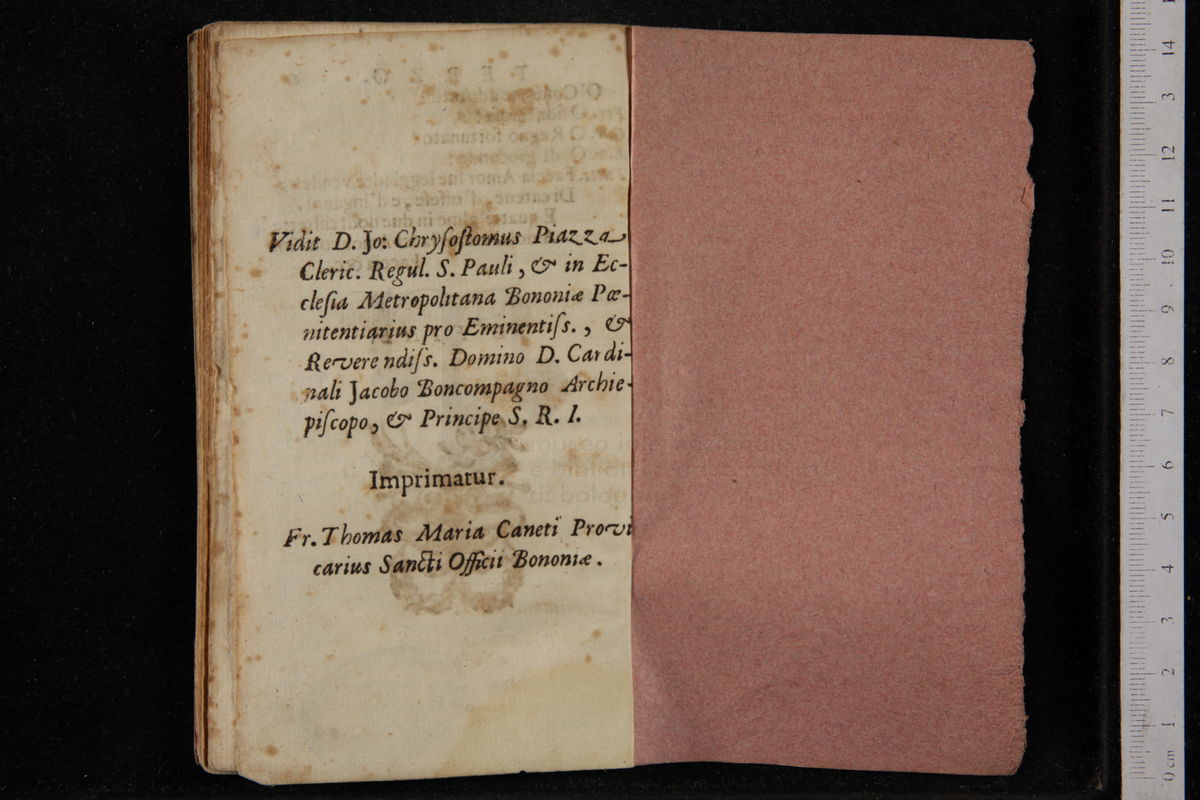 Vidit D. Jo: Chryſoſtomus Piazza
Cleric. Regul. S. Pauli, & in Ec-
cleſia Metropolitana Bononiæ Pœ-
nitentiarius pro Eminentiſs., &
Reverendiſs. Domino D. Cardi-
nali Jacobo Boncompagno Archie-
piſcopo, & Principe S. R. I.
Imprimatur.
Fr. Thomas Maria Caneti Provi
carius Sancti Officii Bononiæ.
museo
e biblio
di bolo
14
3
12
11
10
9
8
7
6
5
4
3
2
1
0 cm